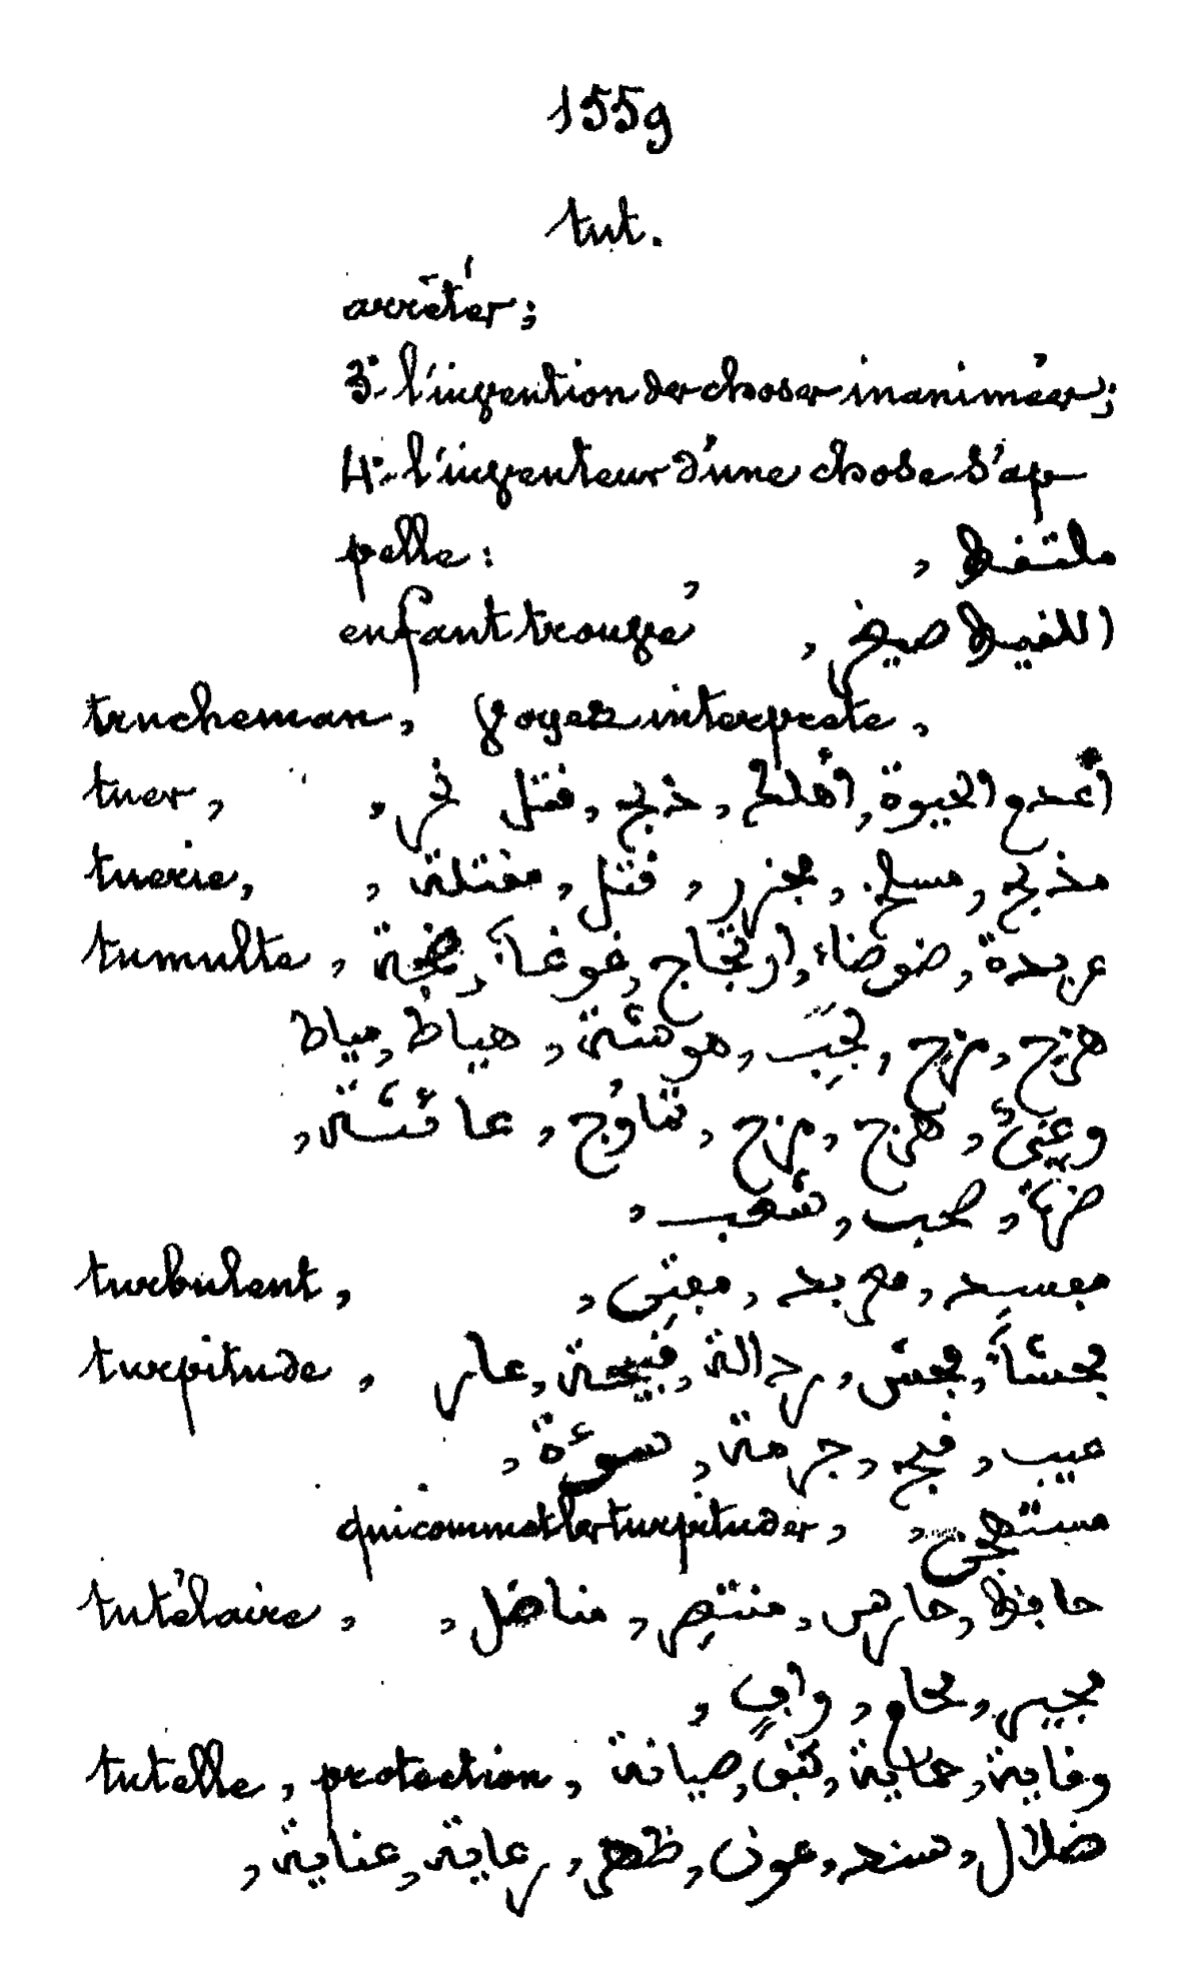 1559
tut.
arrêter;
3° l'invention des choses inanimées;
4° l'inventeur d'une chose s'ap-
pelle: ملتقط,
enfant trouvé, اللقيط
trucheman, voyez interprete,
tuer, أعدم الحيوة, أهلك, ذبح, قتل نحر,
tuerie, مذبح, مسلخ, مجزر, قتل, مقتلة,
tumulte, عربدة, ضوضاء, ارتجاج, غوغاء, ضجّة,
هزج, مزج, لجب, هوشة, هياط, مياط
هرج, مرج, عائشة,
صخب, شغب,
turbulent, مفسد, معربد, مفتن,
turpitude, فحشاء, فحش, رذالة, قبيحة, عار
عيب, قبح, جرمة, سوءة,
qui commet les turpitudes, مستهجن,
tutélaire, حافظ, حارس, منتصر, مناضل,
مجير, محام, واقٍ,
tutelle, protection, وقاية, حماية, كنف, صيانة
ضلال, سند, عون, ظهر, رعاية, عناية,